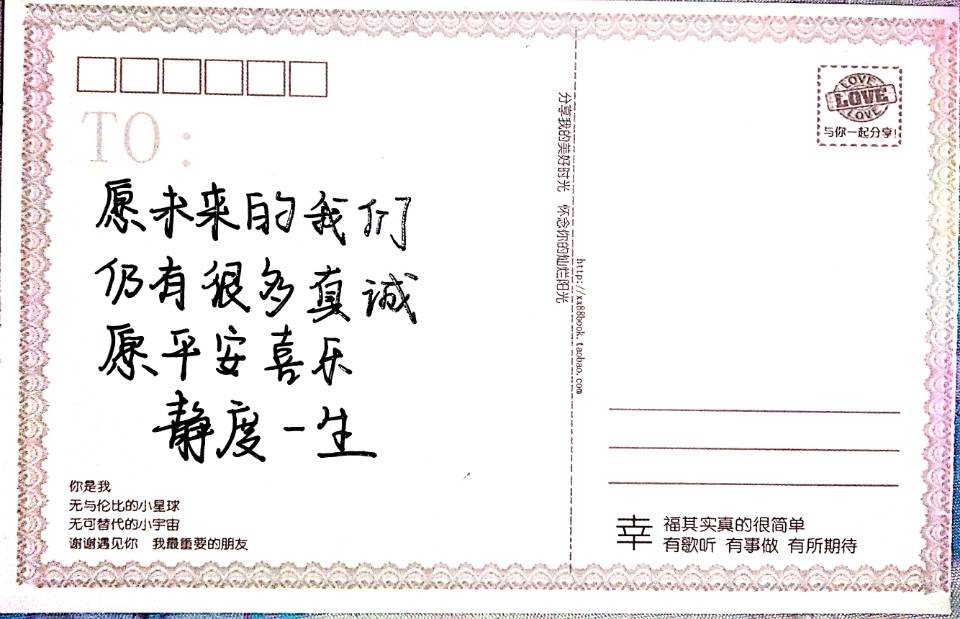 TO:
愿未来的我们
仍有很多真诚
愿平安喜乐
静度一生
你是我
无与伦比的小星球
无可替代的小宇宙
谢谢遇见你 我最重要的朋友
分享我的美好时光 怀念你的灿烂阳光
http://xx88book.taobao.com
LOVE
LOVE
LOVE
与你一起分享!
幸福其实真的很简单
有歌听 有事做 有所期待